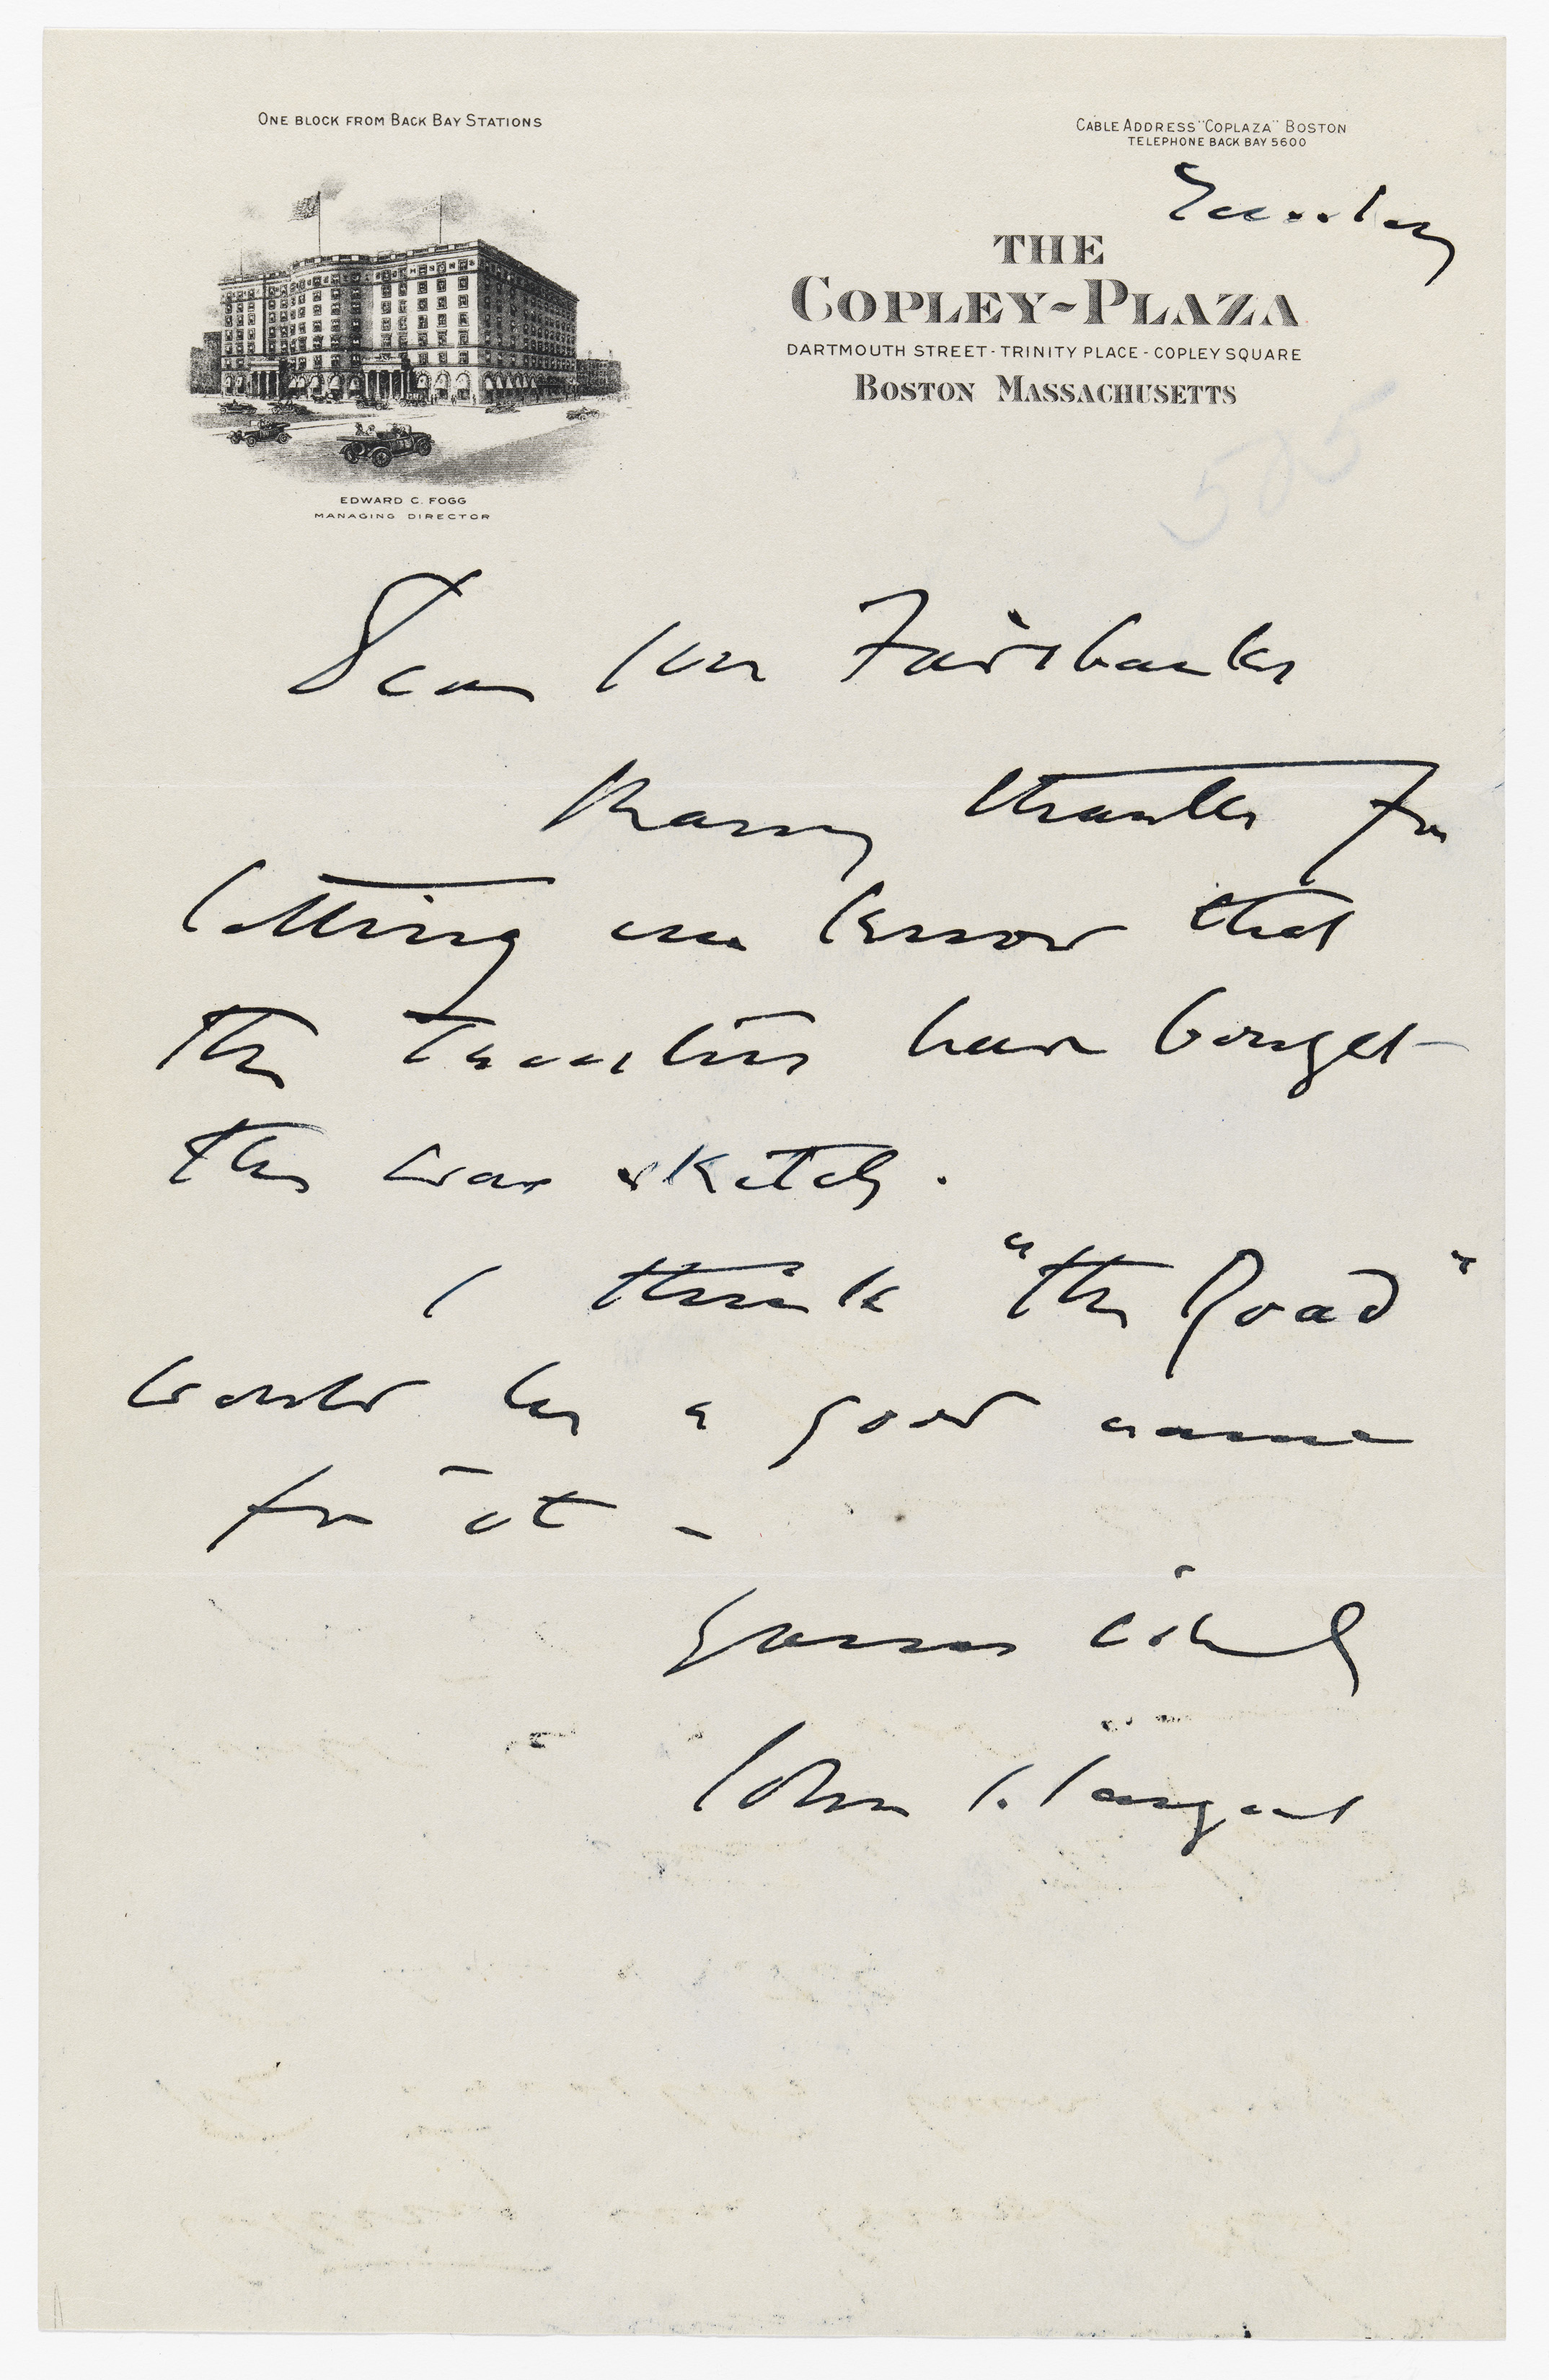 ONE BLOCK FROM BACK BAY STATIONS
CABLE ADDRESS "COPLAZA" BOSTON
TELEPHONE BACK BAY 5600
THE
COPLEY-PLAZA
DARTMOUTH STREET - TRINITY PLACE - COPLEY SQUARE
BOSTON MASSACHUSETTS
505
EDWARD C. FOGG
MANAGING DIRECTOR
Dear Mr Fairbanks
Many thanks for
letting me know that
the Trustees have bought
the war sketch.
I think "the Road"
would be a good name
for it -
Yours
John S. Sargent